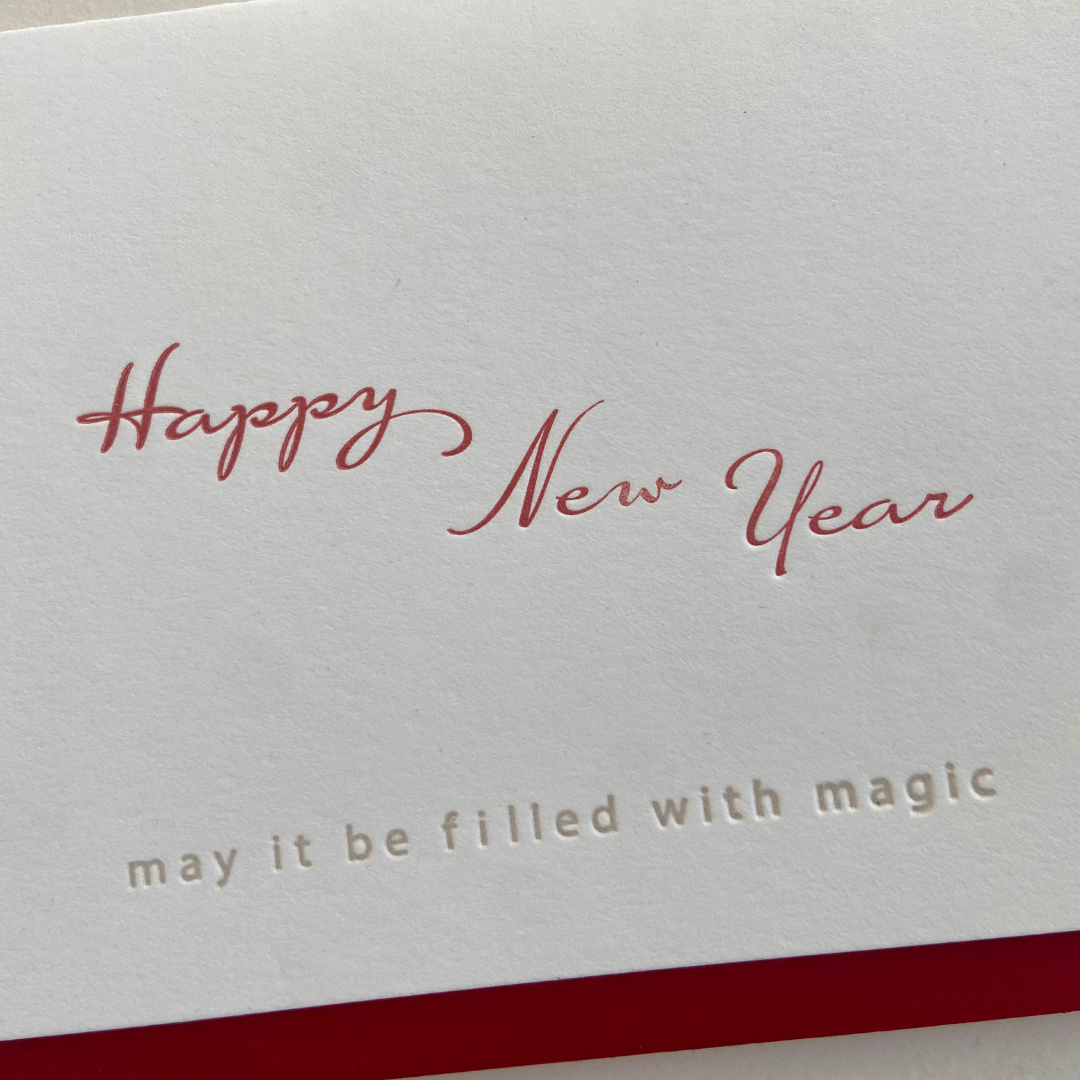 Happy
New Year
may it be filled with magic